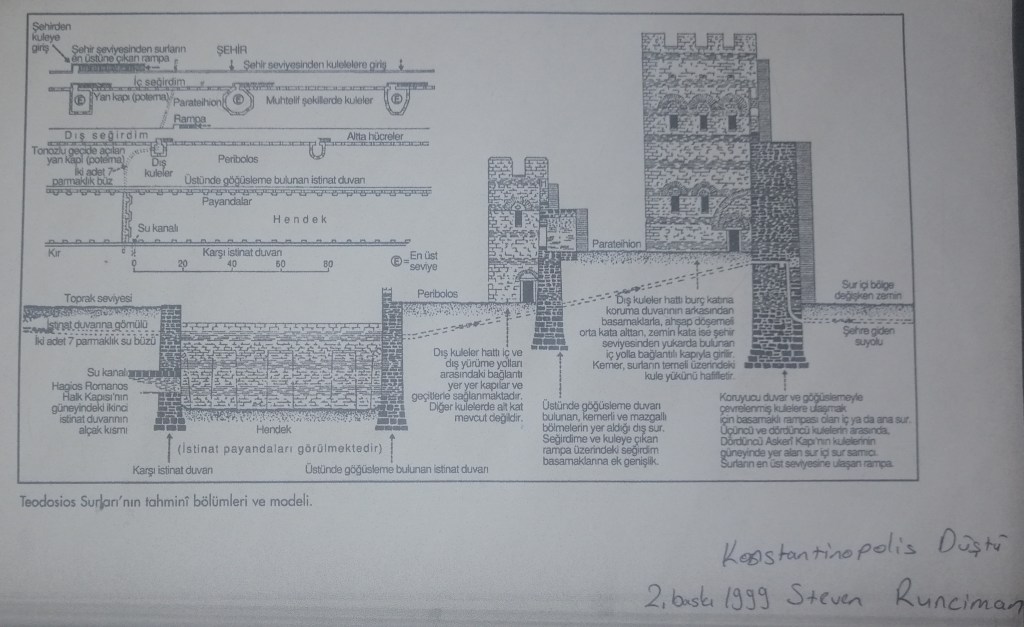 Şehirden
kuleye
giriş
Şehir seviyesinden surların
en üstüne çıkan rampa
ŞEHİR
Şehir seviyesinden kulelelere giriş
İç seğirdim
E
Yan kapı (poterna)
Parateihion
E
Muhtelif şekillerde kuleler
E
Rampa
Dış seğirdim
Altta hücreler
Tonozlu geçide açılan
yan kapı (poterna)
İki adet 7
parmaklık büz
Dış
kuleler
Peribolos
Üstünde göğüsleme bulunan istinat duvarı
Payandalar
Hendek
Su kanalı
Kır
Karşı istinat duvarı
E = En üst
seviye
0 20 40 60 80
Toprak seviyesi
İstinat duvarına gömülü
İki adet 7 parmaklık su büzü
Su kanalı
Hagios Romanos
Halk Kapısı'nın
güneyindeki ikinci
istinat duvarının
alçak kısmı
Hendek
(İstinat payandaları görülmektedir)
Karşı istinat duvarı
Üstünde göğüsleme bulunan istinat duvarı
Peribolos
Dış kuleler hattı iç ve
dış yürüme yolları
arasındaki bağlantı
yer yer kapılar ve
geçitlerle sağlanmaktadır.
Diğer kulelerde alt kat
mevcut değildir.
Parateihion
Dış kuleler hattı burç katına
koruma duvarının arkasından
basamaklarla, ahşap döşemeli
orta kata alttan, zemin kata ise şehir
seviyesinden yukarda bulunan
iç yolla bağlantılı kapıyla girilir.
Kemer, surların temeli üzerindeki
kule yükünü hafifletir.
Üstünde göğüsleme duvarı
bulunan, kemerli ve mazgallı
bölmelerin yer aldığı dış sur.
Seğirdime ve kuleye çıkan
rampa üzerindeki seğirdim
basamaklarına ek genişlik.
Sur içi bölge
değişken zemin
Şehre giden
suyolu
Koruyucu duvar ve göğüslemeyle
çevrelenmiş kulelere ulaşmak
için basamaklı rampası olan iç ya da ana sur.
Üçüncü ve dördüncü kulelerin arasında,
Dördüncü Askerî Kapı'nın kulelerinin
güneyinde yer alan sur içi sarnıcı.
Surların en üst seviyesine ulaşan rampa.
Teodosios Surları'nın tahminî bölümleri ve modeli.
Konstantinopolis Düştü
2. baskı 1999 Steven Runciman